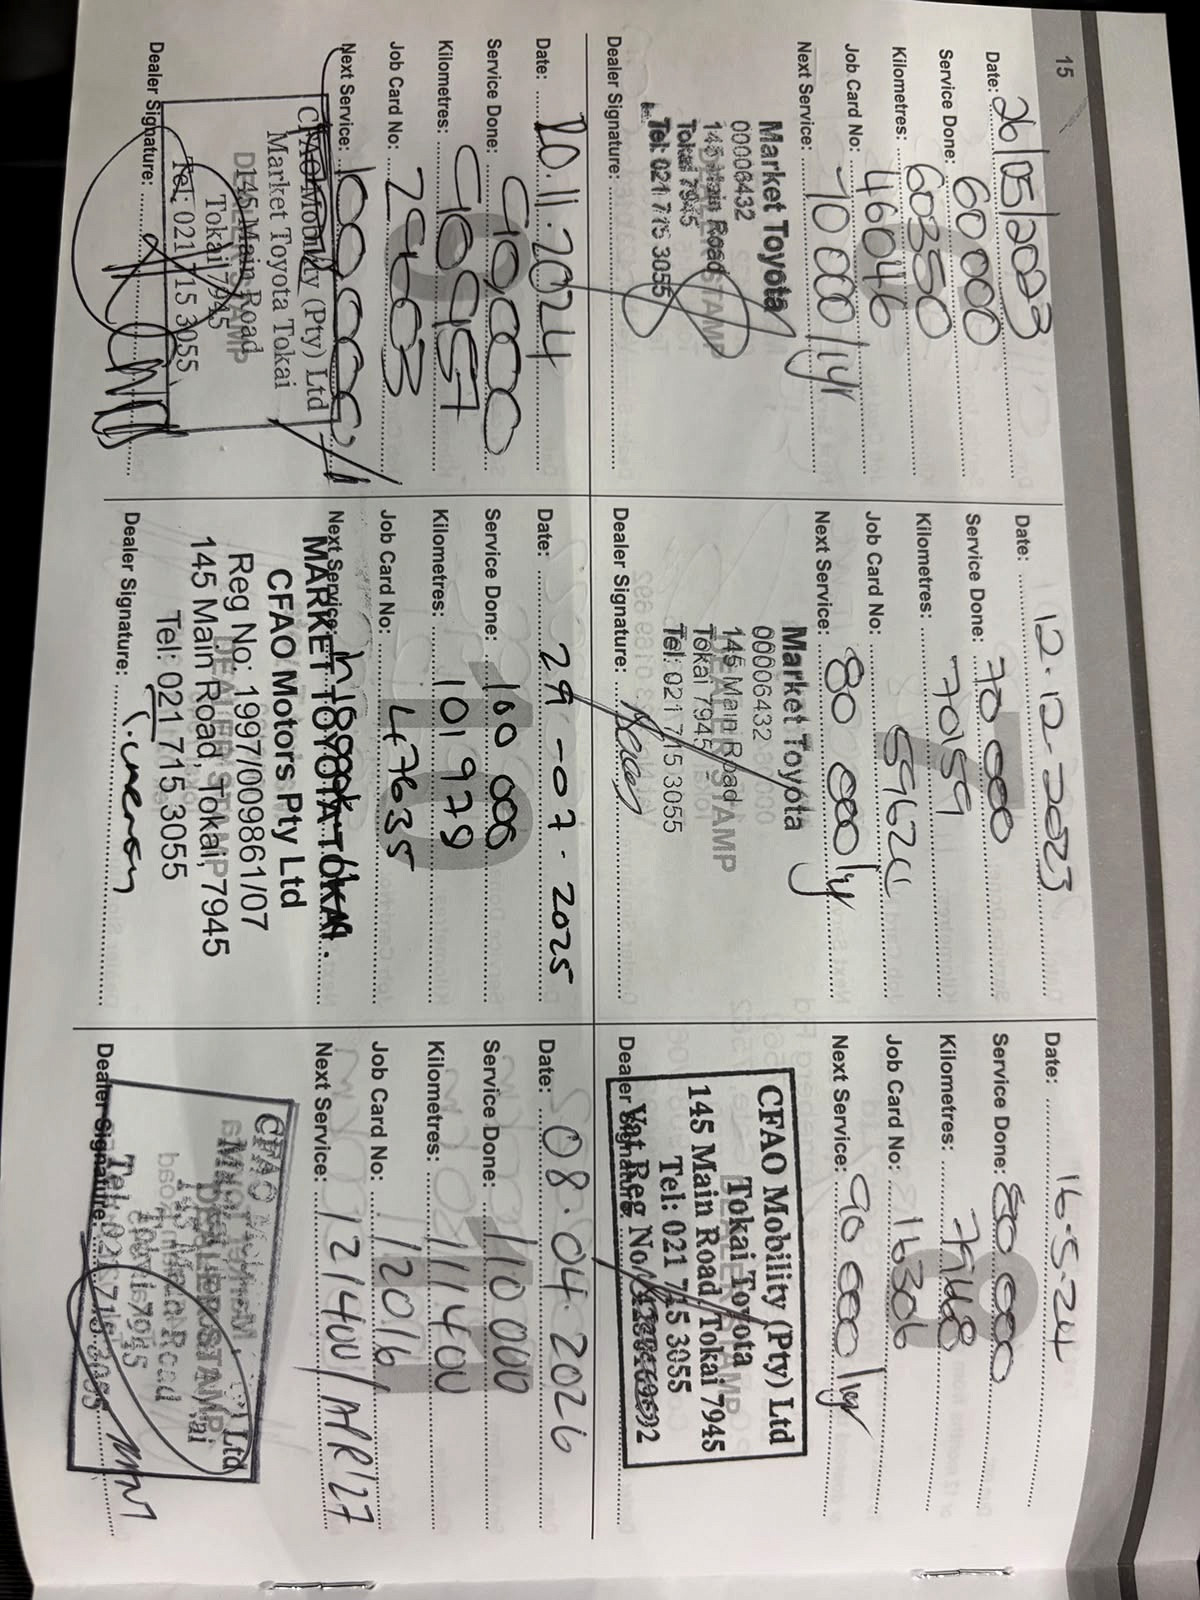 15
Date: 26/05/2023
Service Done: 60 000
Kilometres: 60350
Job Card No: 46046
Next Service: 70 000/1yr
Market Toyota
00006432
145 Main Road
Tokai 7945
Tel: 021 715 3055
DEALER STAMP
Dealer Signature:
Date: 12.12.2023
Service Done: 70 000
Kilometres: 70159
Job Card No:
Next Service: 80 000/1y
Market Toyota
00006432
145 Main Road
Tokai 7945
Tel: 021 715 3055
DEALER STAMP
Dealer Signature:
Date: 16.5.24
Service Done: 80.000
Kilometres: 79468
Job Card No: 116306
Next Service: 90 000/1yr
CFAO Mobility (Pty) Ltd
Tokai Toyota
145 Main Road Tokai 7945
Tel: 021 715 3055
Vat Reg No
DEALER STAMP
Dealer Signature:
Date: 20.11.2024
Service Done: 90000
Kilometres: 90957
Job Card No: 29603
Next Service: 100000
CFAO Mobility (Pty) Ltd
Market Toyota Tokai
145 Main Road
Tokai 7945
Tel: 021 715 3055
DEALER STAMP
Dealer Signature:
10
Date: 29-07.2025
Service Done: 100 000
Kilometres: 101 979
Job Card No: 47635
Next Service:
MARKET TOYOTA TOKAI
CFAO Motors Pty Ltd
Reg No: 1997/009861/07
145 Main Road, Tokai, 7945
Tel: 021 715 3055
DEALER STAMP
Dealer Signature:
11
Date: 08.04.2026
Service Done: 110 000
Kilometres: 111400
Job Card No: 12016
Next Service: 121400/APR'27
CFAO
DEALER STAMP
Dealer Signature: